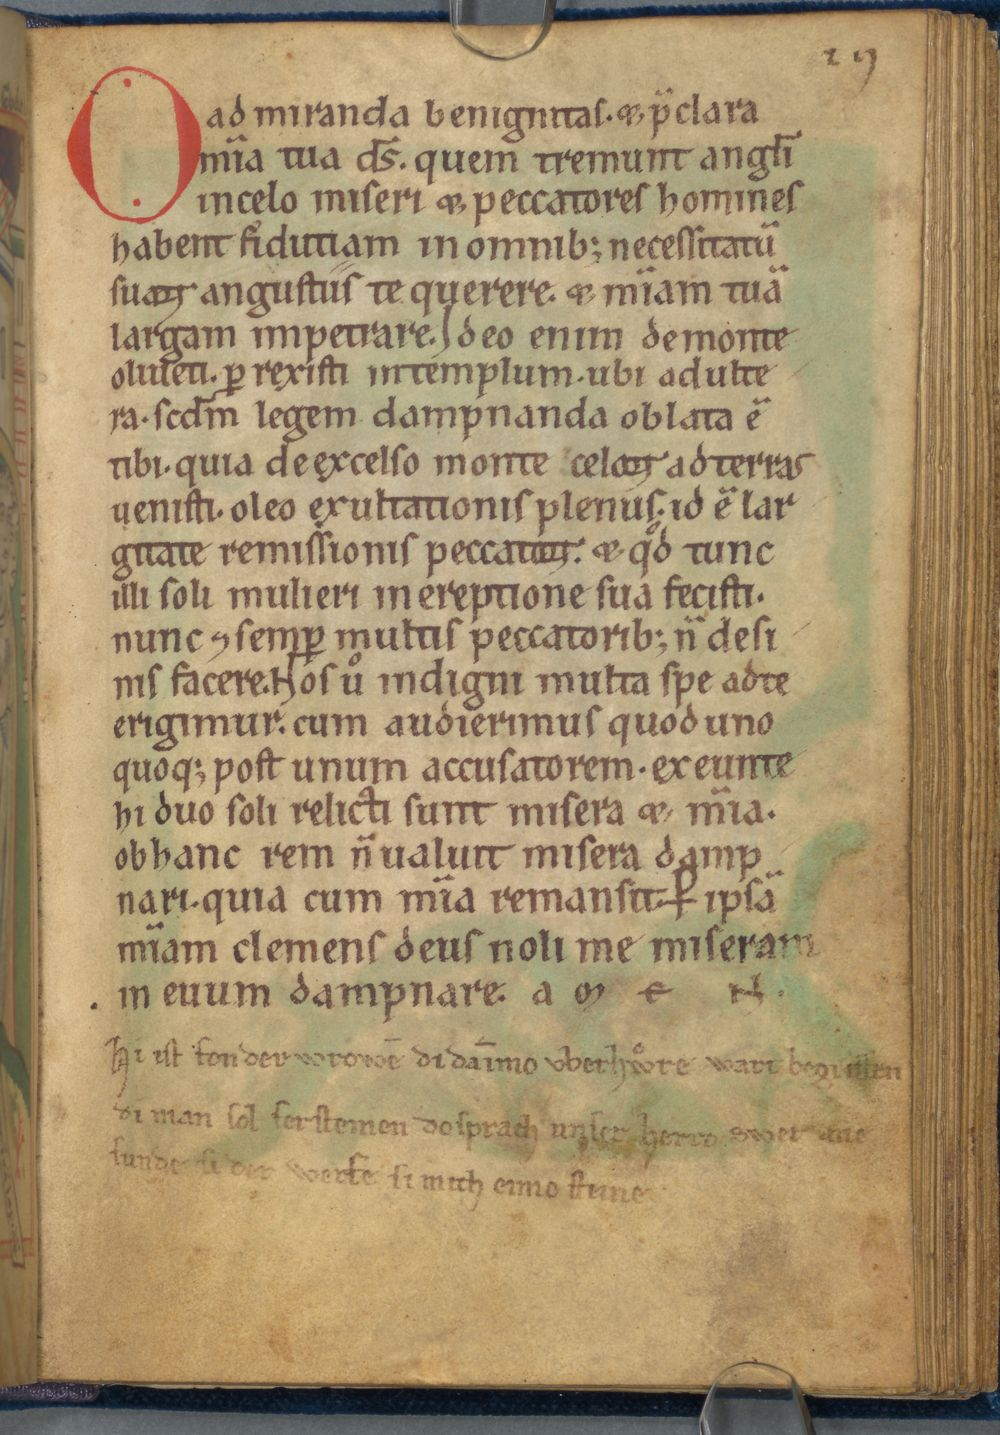 19
O ad miranda benignitas. & p̄clara
mīa tua ds̄. quem tremunt angl̄i
incelo miseri & peccatores homines
habent fidutiam in omnib; necessitatū
suaꝝ angustiis te querere. & mīam tuā
largam impetrare. Ideo enim de monte
oliueti. ꝑ rexisti in templum. ubi adulte
ra. scdm̄ legem dampnanda oblata ē
tibi. quia de excelso monte celoꝝ ad terras
uenisti. oleo exultationis plenus. id ē lar
gitate remissionis peccatoꝝ. & qͦd tunc
illi soli mulieri in ereptione sua fecisti.
nunc ⁊ semꝑ multis peccatorib; n̄ desi
nis facere. Nos uͦ indigni multa spe ad te
erigimur. cum audierimus quod uno
quoq; post unum accusatorem. exeunte
hi duo soli relicti sunt misera & mīa.
ob hanc rem n̄ ualuit misera damp
nari. quia cum mīa remansit. ꝑ ipsā
mīam clemens deus noli me miseram
in euum dampnare. a m e N.
Hi ist fonder vrowē di da īmo vberhuͦre wart begriffen
di man sol fersteinen do sprach unser herro swer ane
sunde si der werfe si mich eimo steine